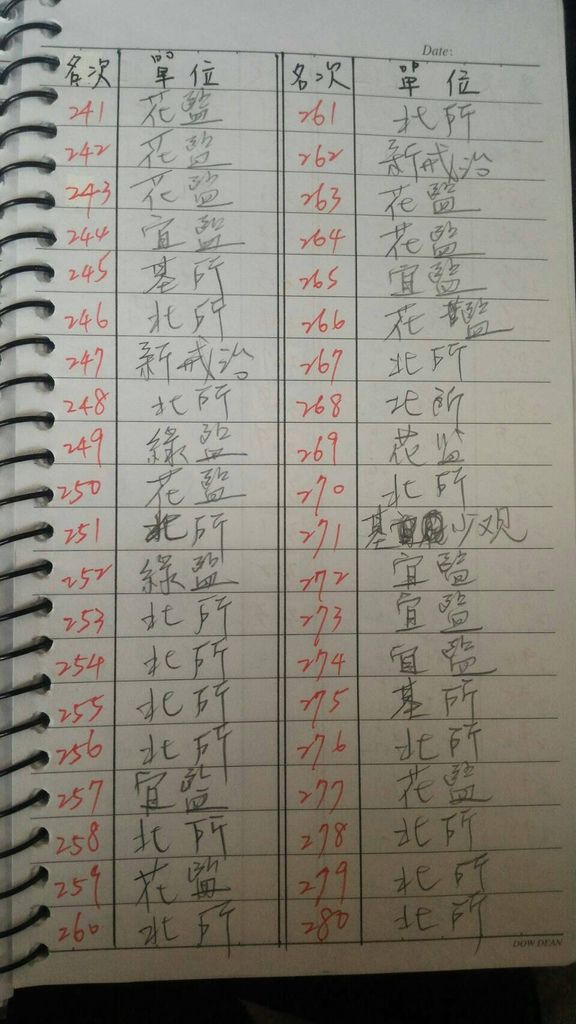 Date:
名次 單位 名次 單位
241 花監 261 北所
242 花監 262 新戒治
243 花監 263 花監
244 宜監 264 花監
245 基所 265 宜監
246 北所 266 花監
247 新戒治 267 北所
248 北所 268 北所
249 綠監 269 花监
250 花監 270 北所
251 北所 271 基少观
252 綠監 272 宜監
253 北所 273 宜監
254 北所 274 宜監
255 北所 275 基所
256 北所 276 北所
257 宜監 277 花監
258 北所 278 北所
259 花監 279 北所
260 北所 280 北所
DOW DEAN